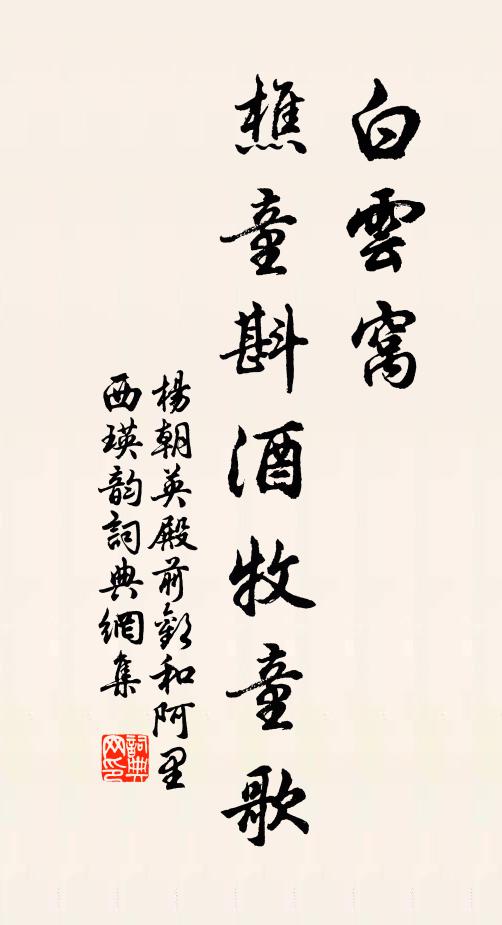 白雲窩
樵童斟酒牧童歌
楊朝英殿前歡和阿里
西瑛韵詞典網集
詞典
网印